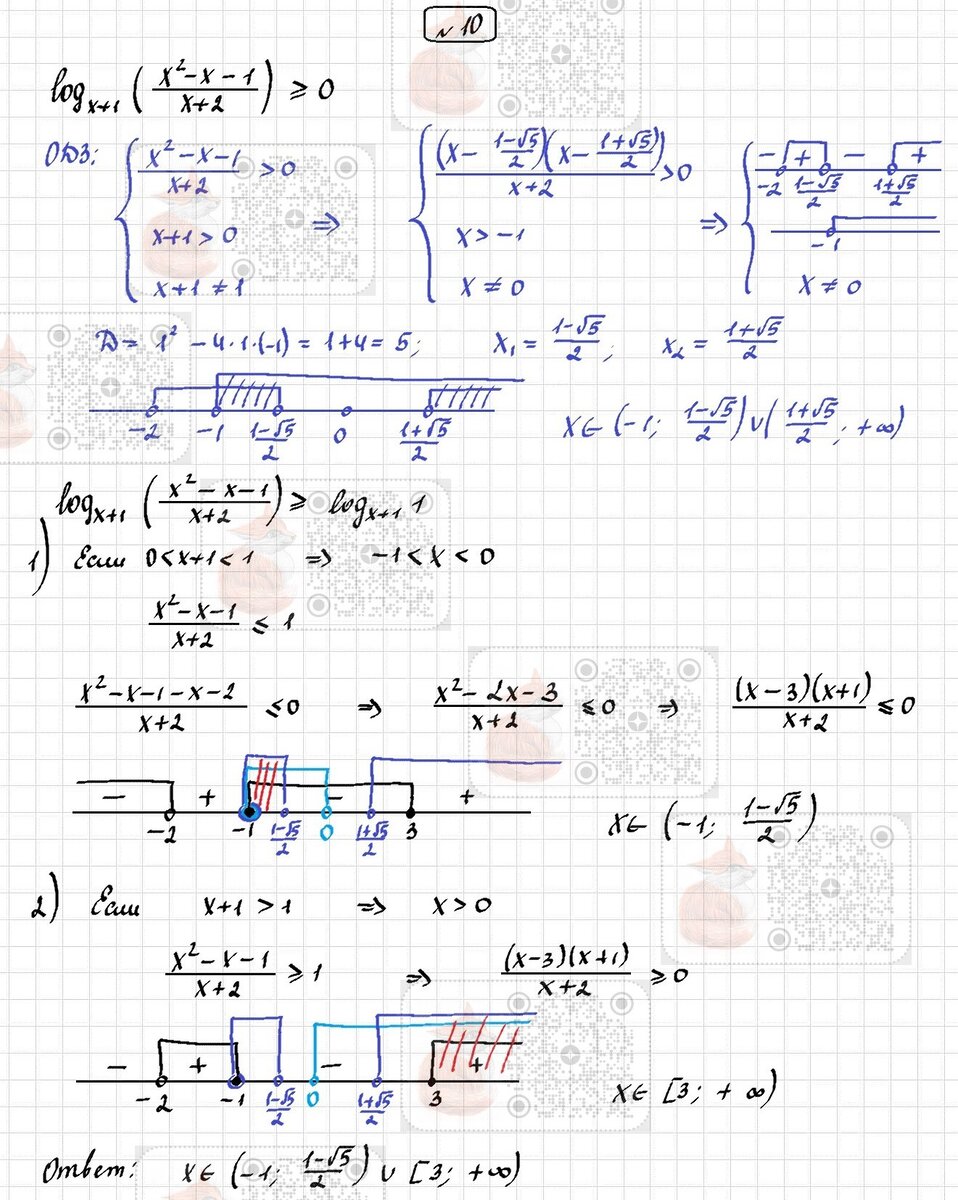 №10
log_{x+1} ( (x² - x - 1)/(x+2) ) ≥ 0
ОДЗ: { (x² - x - 1)/(x+2) > 0 ; x+1 > 0 ; x+1 ≠ 1 ⇒ { ((x - (1-√5)/2)(x - (1+√5)/2))/(x+2) > 0 ; x > -1 ; x ≠ 0 ⇒ { - + - + ; -2 (1-√5)/2 (1+√5)/2 ; -1 ; x ≠ 0
D = 1² - 4·1·(-1) = 1+4 = 5; x₁ = (1-√5)/2; x₂ = (1+√5)/2
-2 -1 (1-√5)/2 0 (1+√5)/2 x ∈ (-1; (1-√5)/2) ∪ ((1+√5)/2; +∞)
log_{x+1} ( (x² - x - 1)/(x+2) ) ≥ log_{x+1} 1
1) Если 0 < x+1 < 1 ⇒ -1 < x < 0
(x² - x - 1)/(x+2) ≤ 1
(x² - x - 1 - x - 2)/(x+2) ≤ 0 ⇒ (x² - 2x - 3)/(x+2) ≤ 0 ⇒ ((x-3)(x+1))/(x+2) ≤ 0
- + - +
-2 -1 (1-√5)/2 0 (1+√5)/2 3 x ∈ (-1; (1-√5)/2)
2) Если x+1 > 1 ⇒ x > 0
(x² - x - 1)/(x+2) ≥ 1 ⇒ ((x-3)(x+1))/(x+2) ≥ 0
- + - +
-2 -1 (1-√5)/2 0 (1+√5)/2 3 x ∈ [3; +∞)
Ответ: x ∈ (-1; (1-√5)/2) ∪ [3; +∞)